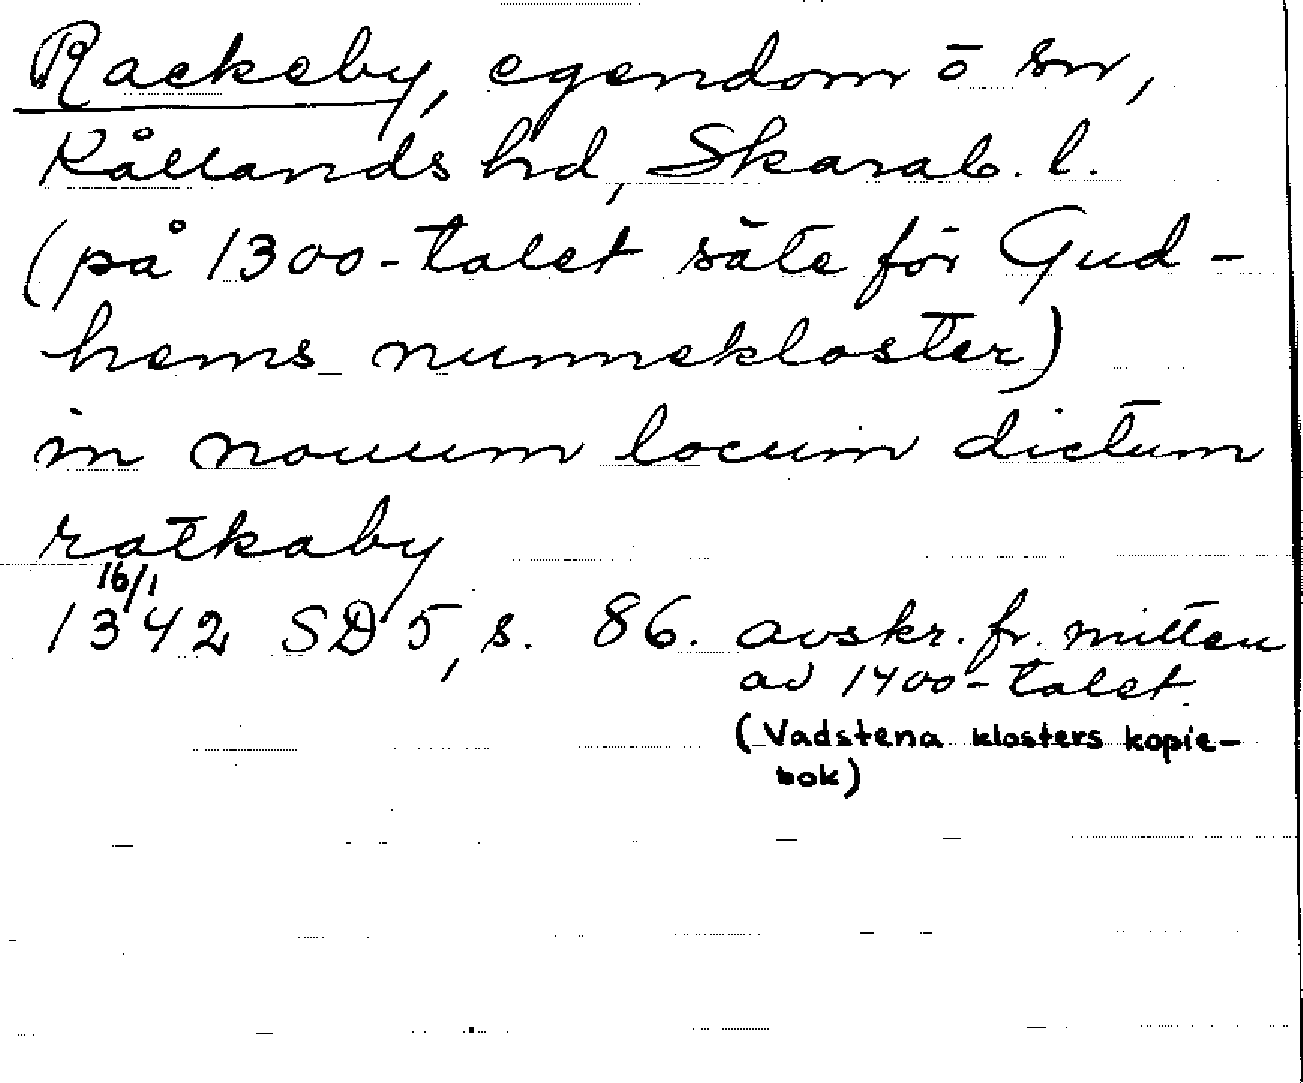 Rackeby, egendom o sn,
Kållands hd, Skarab. l.
(på 1300-talet säte för Gud-
hems nunnekloster)
in nouum locum dictum
ratkaby
16/1
1342 SD 5, s. 86. avskr. fr. mitten
av 1400-talet.
(Vadstena klosters kopie-
bok)